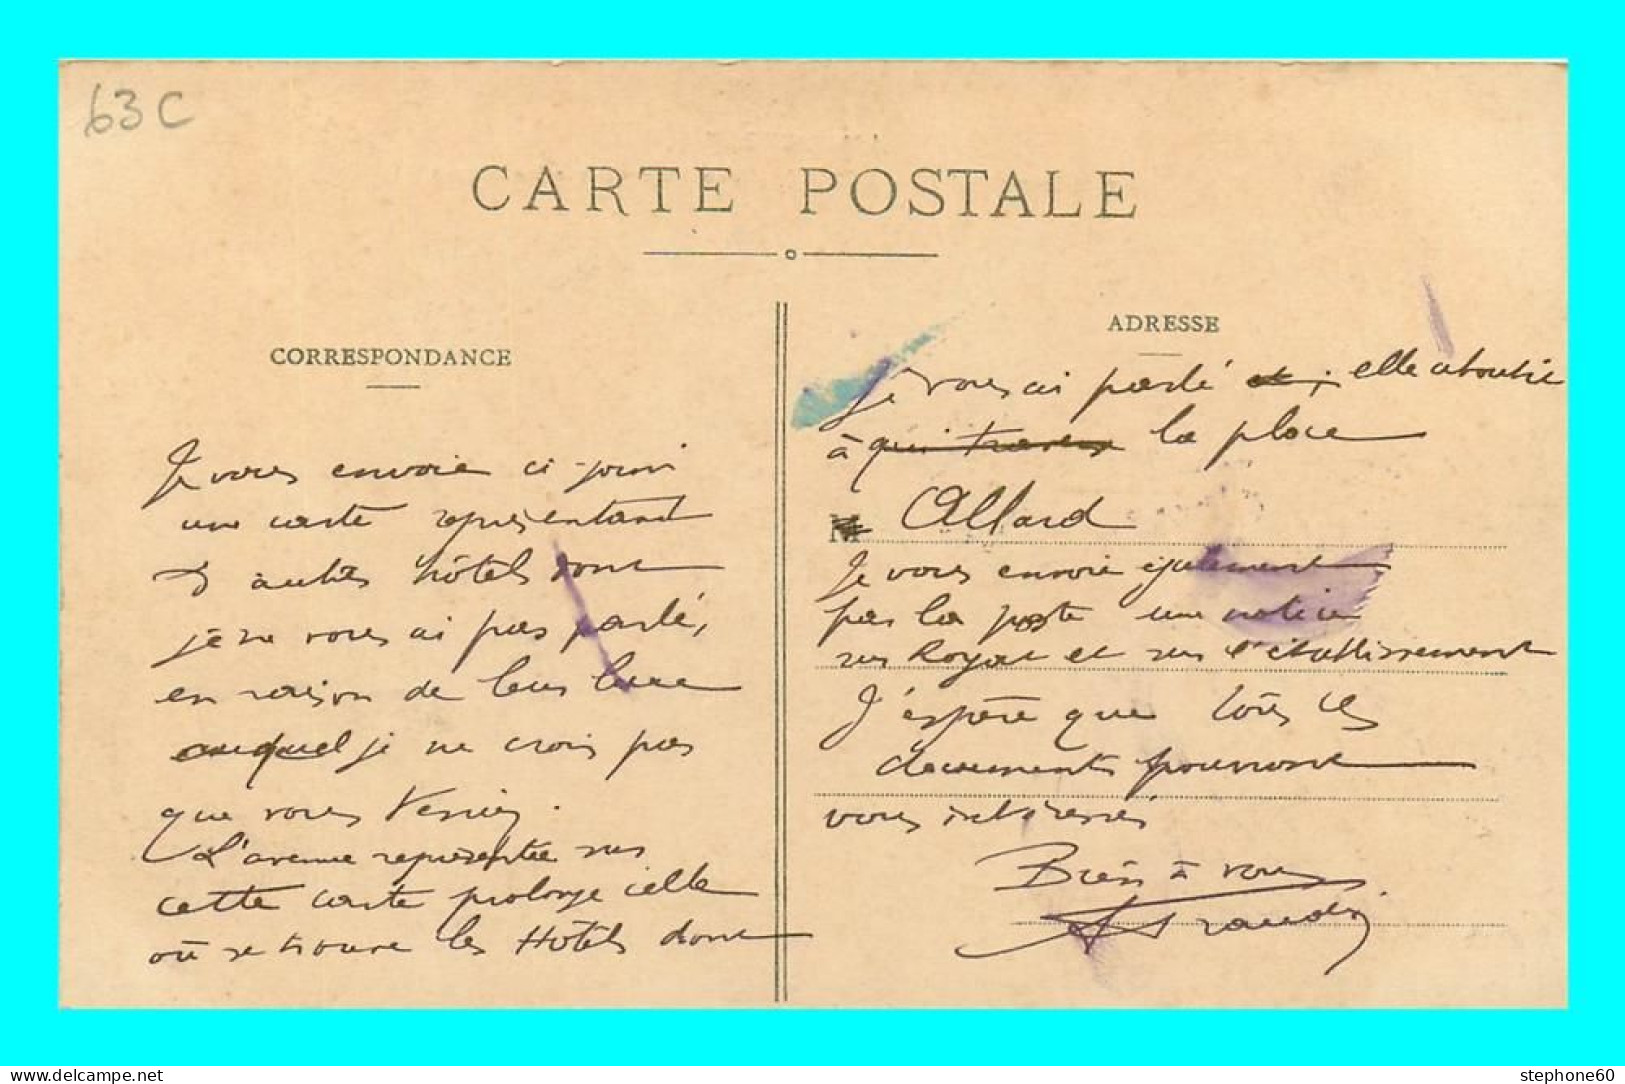 63 C
CARTE POSTALE
CORRESPONDANCE
Je vous envoie ci-joint
une carte représentant
d'autres hôtels dont
je ne vous ai pas parlé,
en raison de leur luxe
auquel je ne crois pas
que vous teniez.
L'avenue représentée sur
cette carte prolonge celle
où se trouve les Hôtels dont
ADRESSE
je vous ai parlé et ; elle aboutie
à qui traverse la place
M Allard
Je vous envoie également
par la poste une notice
sur Royat et sur l'établissement
J'espère que tous ces
documents pourront
vous intéresser
Bien à vous
stephone60
www.delcampe.net